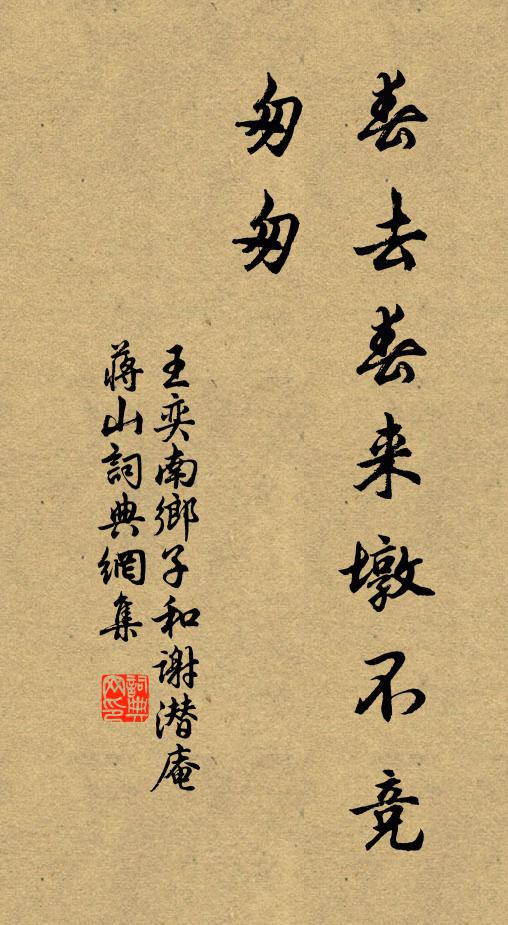 春去春来墩不竞
匆匆
王奕南鄉子和谢潜庵
蒋山詞典網集
詞典